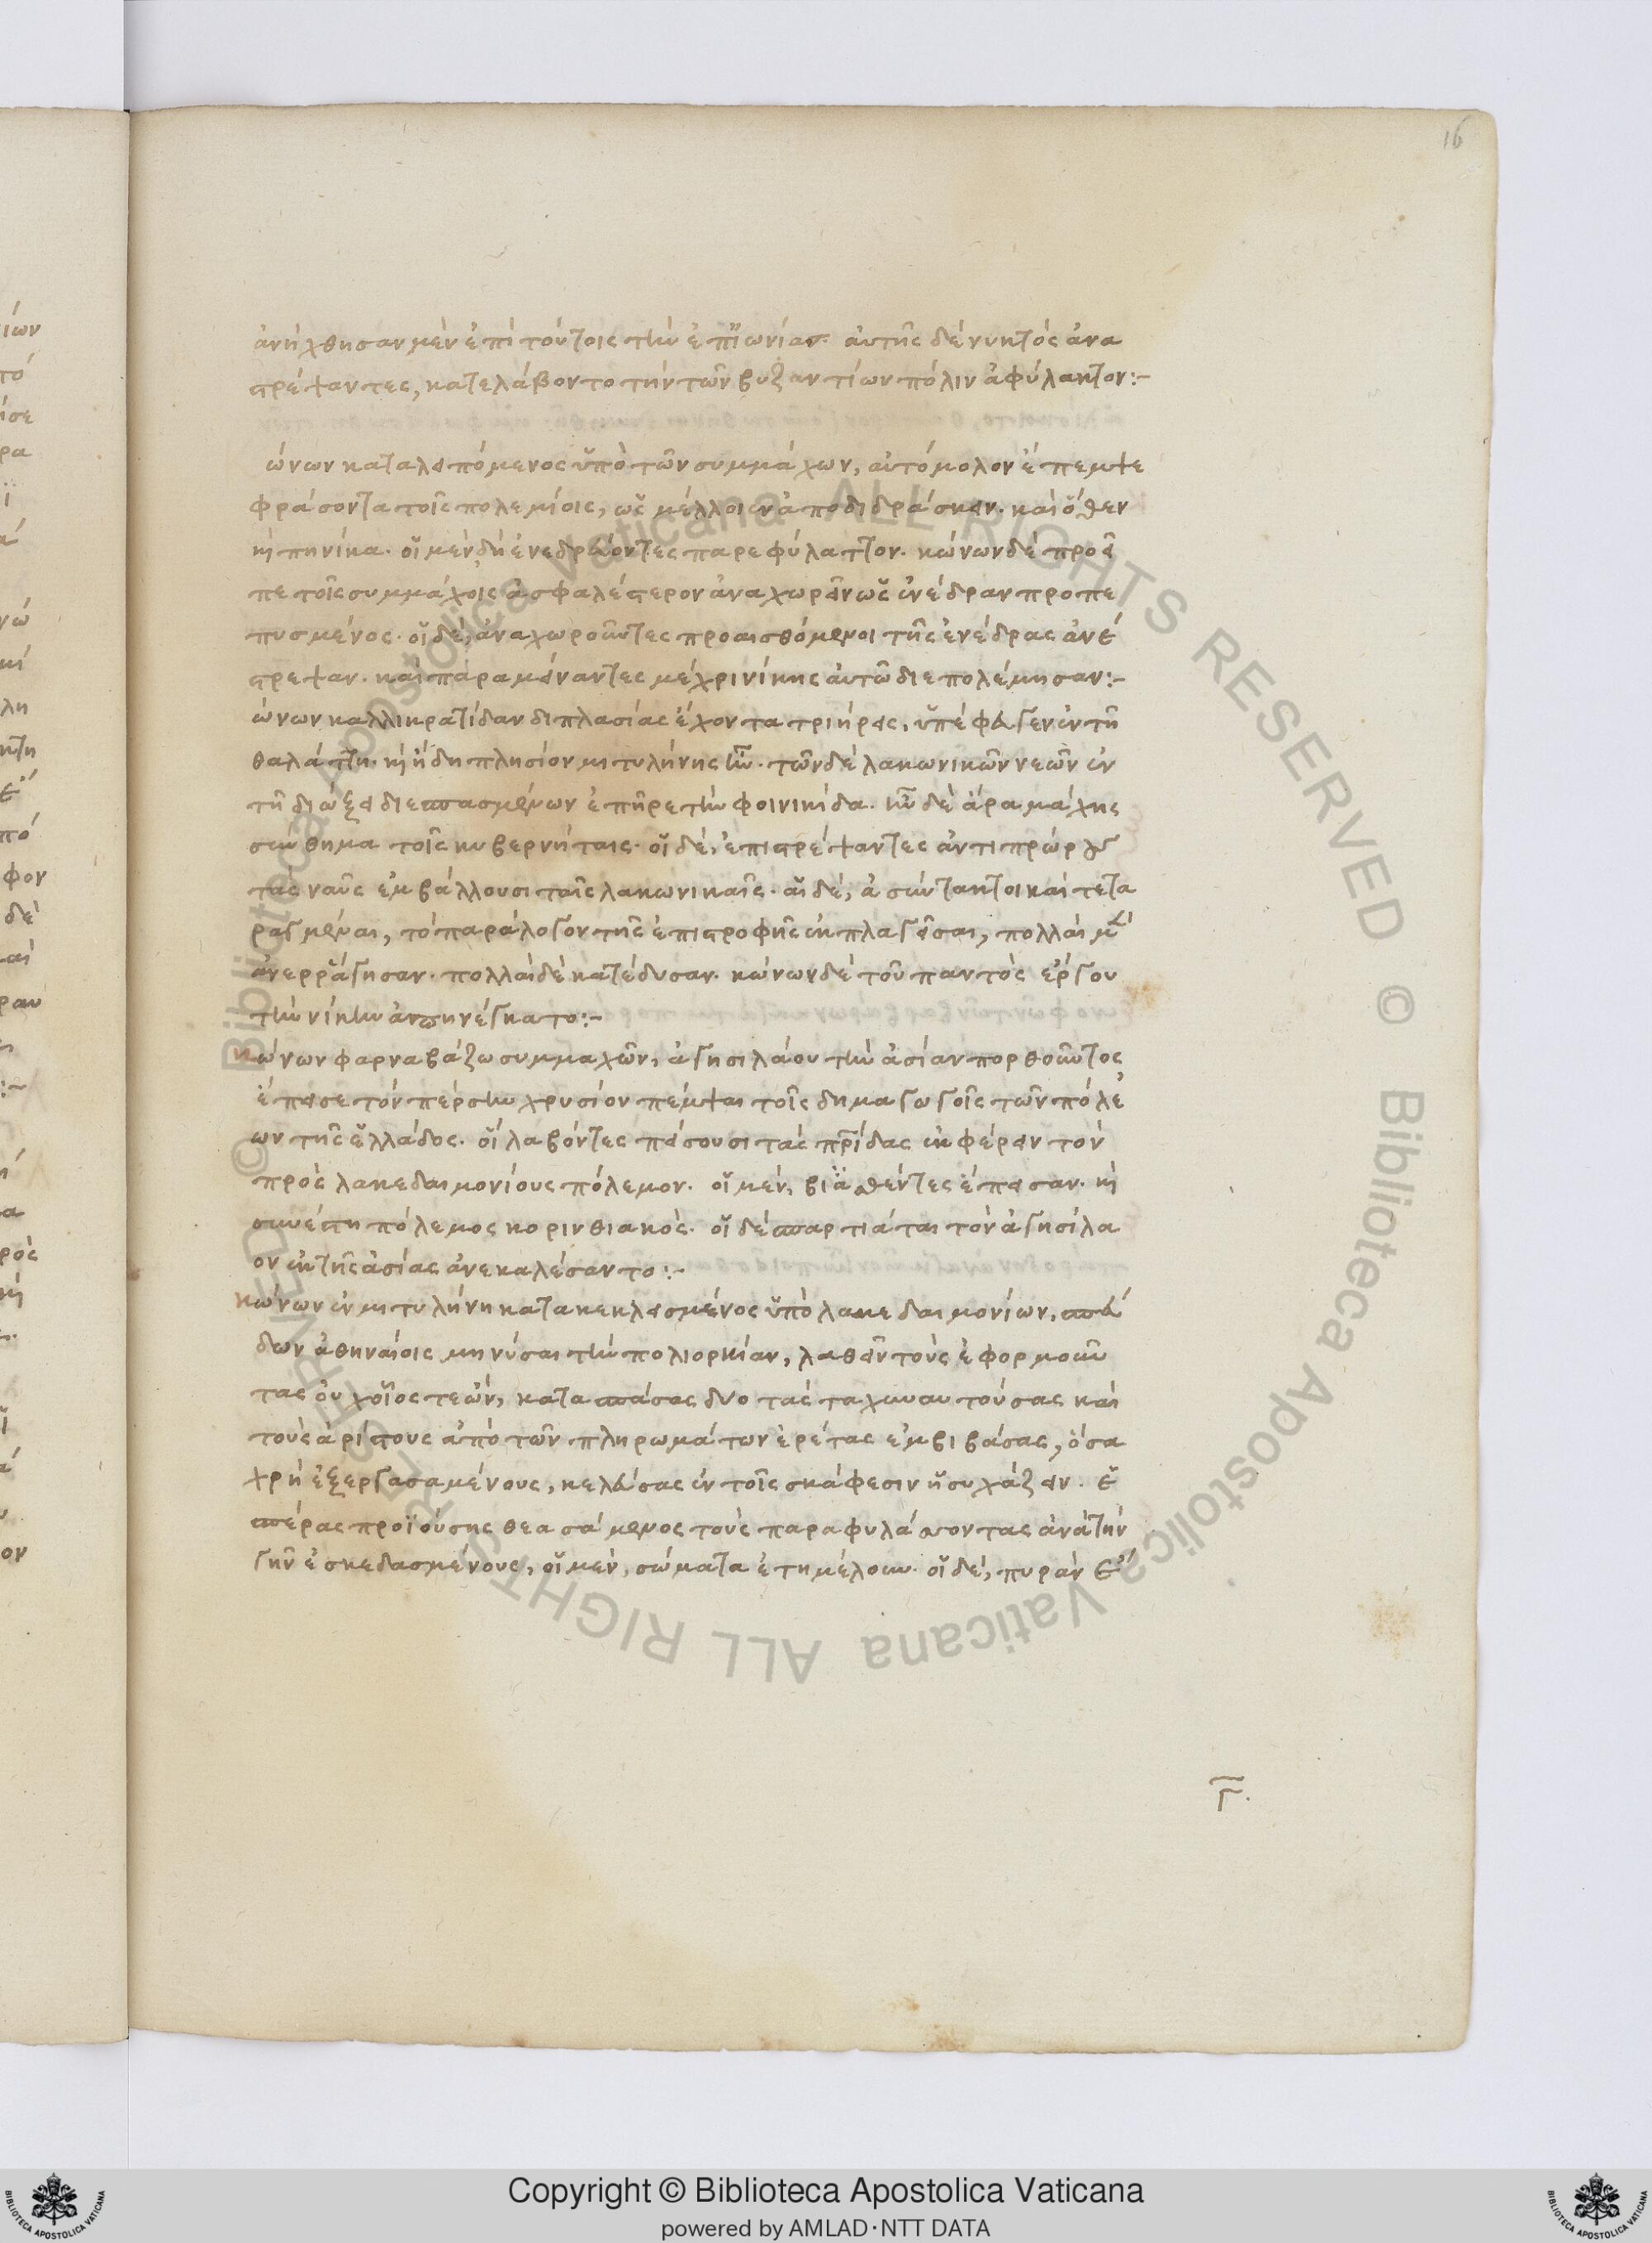 16
ἀνήχθησαν μὲν ἐπὶ τούτοις τὴν ἐπ ἰωνίας. αὐτῆς δὲ νυκτὸς ἀνα
στρέψαντες, κατελάβοντο τὴν τῶν βυζαντίων πόλιν ἀφύλακτον:-
ώνων καταλειπόμενος ὑπὸ τῶν συμμάχων, αὐτόμολον ἔπεμψε
φράσοντα τοῖς πολεμίοις, ὡς μέλλοιεν ἀποδιδράσκειν. καὶ ὅθεν
κὶ πηνίκα. οἱ μὲν δὴ ἐνεδρεύοντες παρεφύλαττον. κώνων δὲ προεῖ
πε τοῖς συμμάχοις ἀσφαλέστερον ἀναχωρεῖν ὡς ἐνέδραν προπε
πυσμένος. οἱ δὲ, ἀναχωροῦντες προαισθόμενοι τῆς ἐνέδρας ἀνέ
στρεψαν. καὶ παραμείναντες μέχρι νίκης αὐτῶ διεπολέμησαν:-
ώνων καλλικρατίδαν διπλασίας ἔχοντα τριήρεις, ὑπέφευγεν ἐν τῆ
θαλάττη. κὶ ἤδη πλησίον μιτυλήνης ἦν. τῶν δὲ λακωνικῶν νεῶν ἐν
τῆ διώξει διεσπασμένων ἐπῆρε τὴν φοινικίδα. ἦν δὲ ἄρα μάχης
σύνθημα τοῖς κυβερνήταις. οἱ δὲ, ἐπιστρέψαντες ἀντιπρώρους
τὰς ναῦς ἐμβάλλουσι ταῖς λακωνικαῖς. αἱ δὲ, ἀσύντακτοι καὶ τετα
ραγμέναι, τὸ παράλογον τῆς ἐπιστροφῆς ἐκπλαγεῖσαι, πολλαὶ μὲν
ἀνερράγησαν. πολλαὶ δὲ κατέδυσαν. κώνων δὲ τοῦ παντὸς ἔργου
τὴν νίκην ἀπηνέγκατο:-
κώνων φαρναβάζω συμμαχῶν, ἀγησιλάου τὴν ἀσίαν πορθοῦντος
ἔπεισε τὸν πέρσην χρυσίον πέμψαι τοῖς δημαγωγοῖς τῶν πόλε
ων τῆς ἑλλάδος. οἳ λαβόντες πείσουσι τὰς πρίδας ἐκφέρειν τὸν
πρὸς λακεδαιμονίους πόλεμον. οἱ μὲν, βιασθέντες ἔπεισαν. κὶ
συνέστη πόλεμος κορινθιακὸς. οἱ δὲ σπαρτιάται τὸν ἀγησίλα
ον ἐκ τῆς ἀσίας ἀνεκαλέσαντο:-
κώνων ἐν μιτυλήνη κατακεκλεισμένος ὑπὸ λακεδαιμονίων, σπεύ
δων ἀθηναίοις μηνύσαι τὴν πολιορκίαν, λαθεῖν τοὺς ἐφορμοῦν
τας οὐχ οἷος τε ὢν, κατασπάσας δύο τὰς ταχυναυτούσας καὶ
τοὺς ἀρίστους ἀπὸ τῶν πληρωμάτων ἐρέτας ἐμβιβάσας, ὅσα
χρὴ ἐξεργασαμένους, κελεύσας ἐν τοῖς σκάφεσιν ἡσυχάζειν. ἑ
σπέρας προϊούσης θεασάμενος τοὺς παραφυλάσσοντας ἀνὰ τὴν
γῆν ἐσκεδασμένους, οἱ μὲν, σώματα ἐτημέλουν. οἱ δὲ, πυρὰν ἔ
γ.
Copyright © Biblioteca Apostolica Vaticana
powered by AMLAD·NTT DATA
© Biblioteca Apostolica Vaticana ALL RIGHTS RESERVED
© Biblioteca Apostolica Vaticana ALL RIGHTS RESERVED